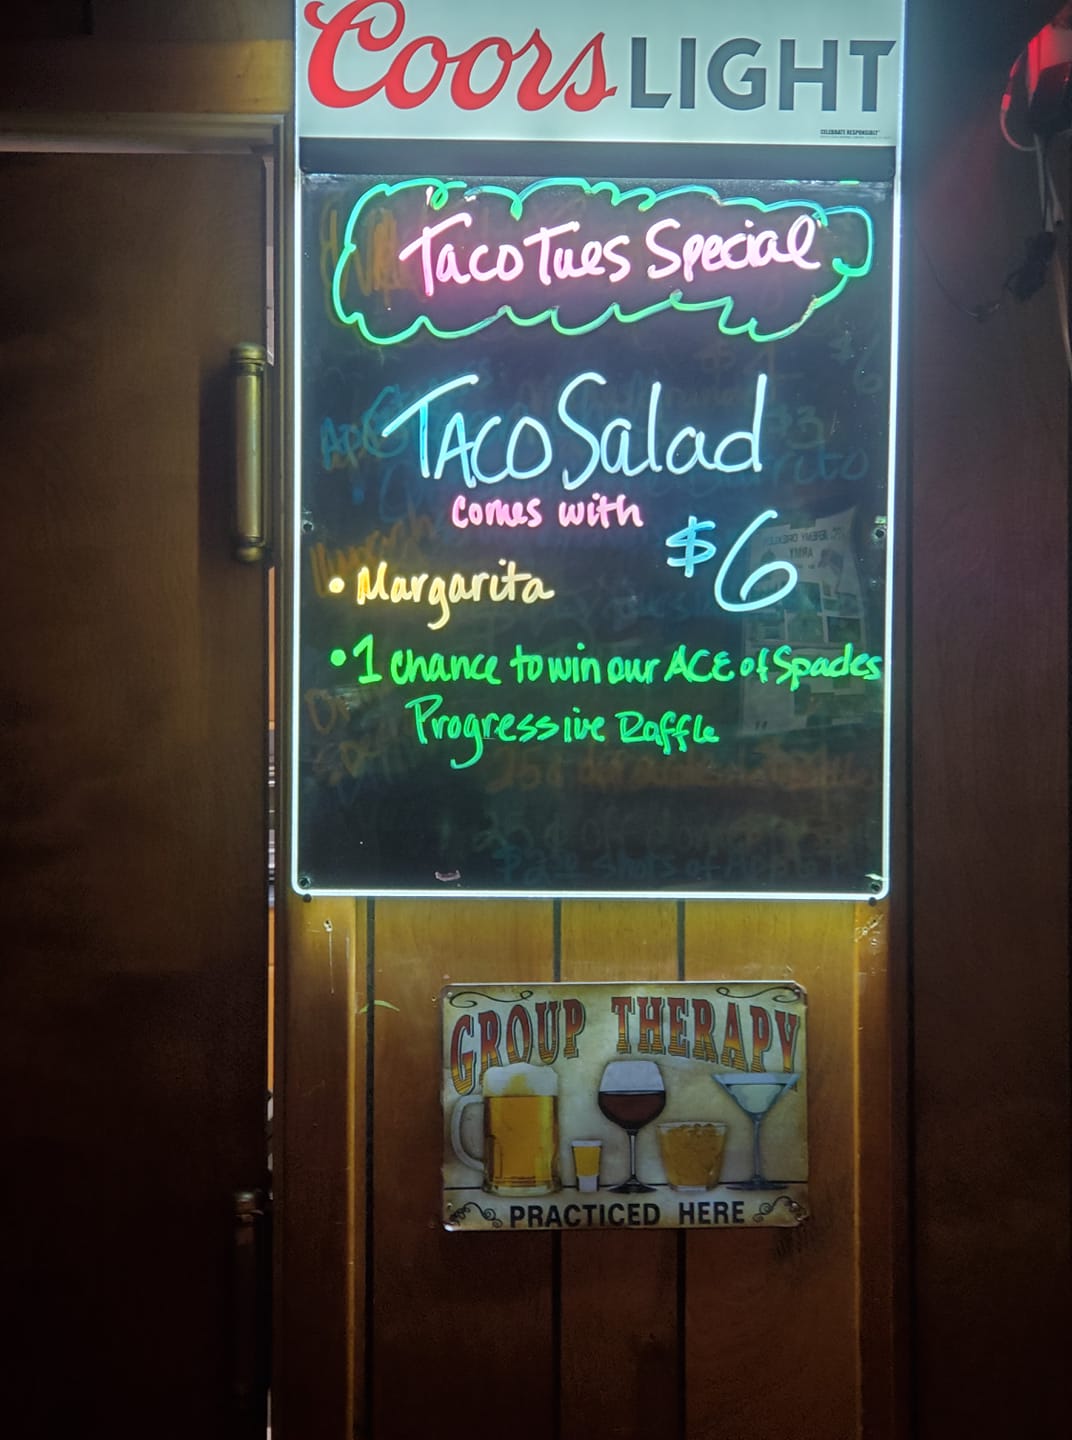 Coors LIGHT
CELEBRATE RESPONSIBLY
Taco Tues Special
TACO Salad
comes with
$6
• Margarita
• 1 chance to win our ACE of Spades
Progressive Raffle
GROUP THERAPY
PRACTICED HERE